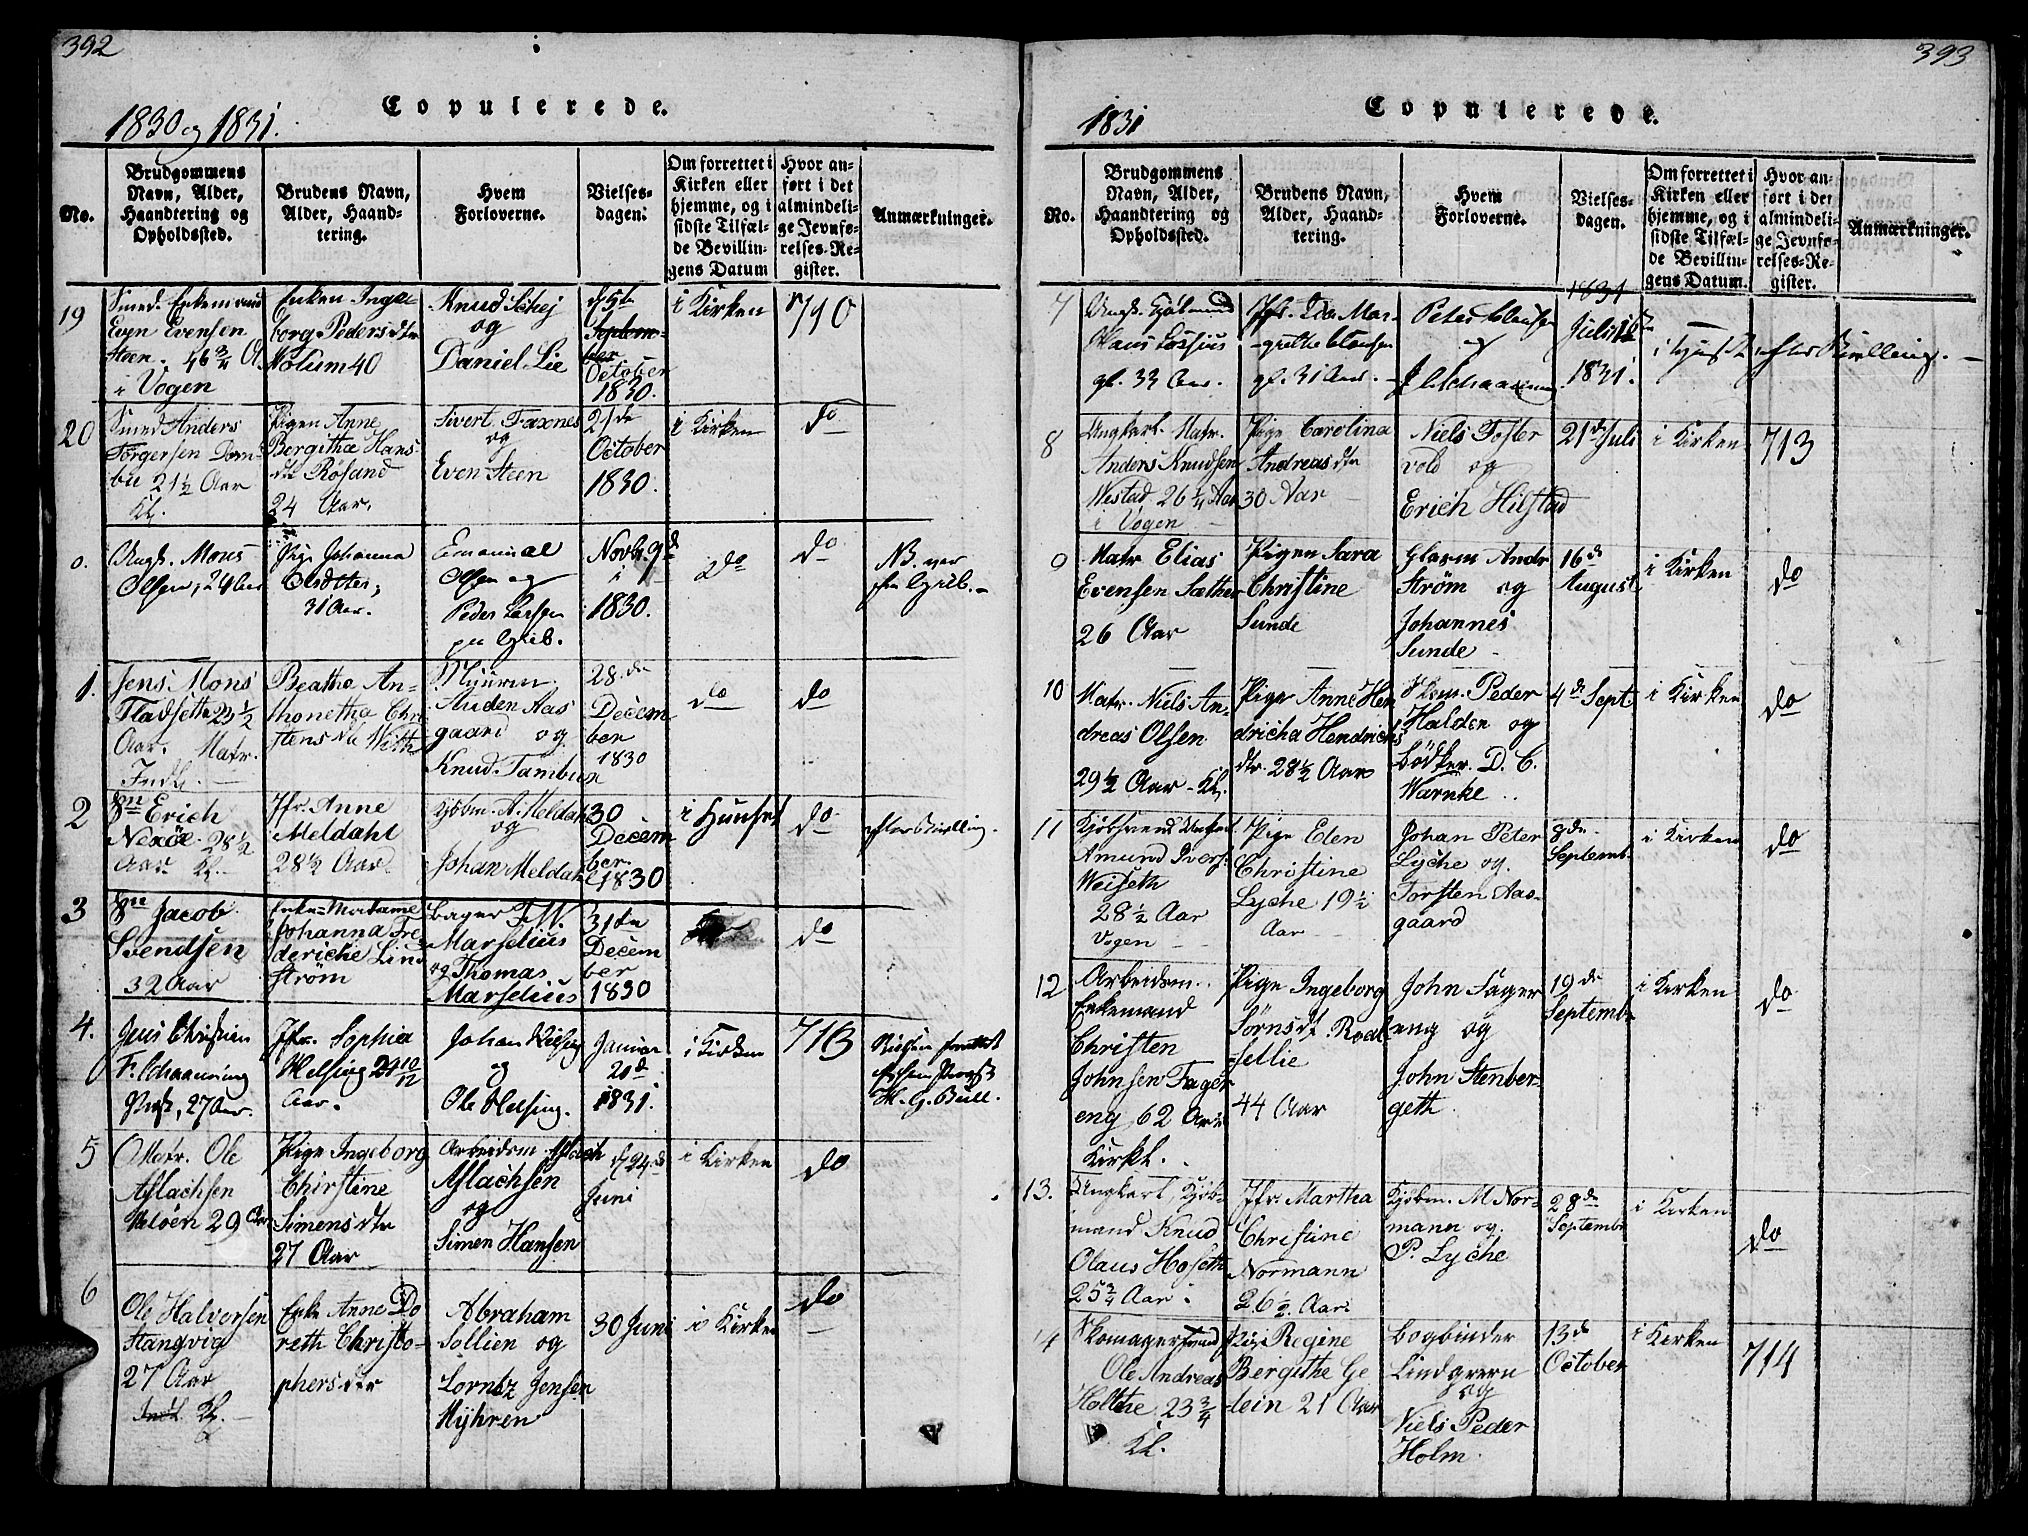 392
1830 og 1831.
Copulerede.
No.
Brudgommens
Navn, Alder,
Haandtering og
Opholdssted.
Brudens Navn,
Alder, Haand-
tering.
Hvem
Forloverne.
Vielses-
dagen.
Om forrettet i
Kirken eller
hjemme, og i
sidste Tilfæl-
de Bevillin-
gens Datum
Hvor an-
ført i det
almindeli-
ge Jevnfø-
relses-Re-
gister.
Anmærkninger.
19
Smed. Enkemand
Even Evensen
Steen. 46 3/4 A.
i Vogen
Enken Inge
borg Pedersdtr
Nolum 40
Knud
og
Daniel Lie
d 5te
Septem-
ber
October
1830.
i Kirken
710
20
Smed Anders
Törgersen Dom-
bu 21 1/2 Aar
Kl.
Pigen Anne
Bergithæ Hans
dtr Rösand
24 Aar.
Sivert Faxnes
og
Even Steen
21de
October
1830.
i Kirken
do
0.
Ungk. Mons
Olsen, 24 Aar
Pige Johanna
Olsdtter,
31 Aar.
Emanuel
Olsen og
Peder Larsen
Novbr 9d
i
1830.
do
do
NB.
1.
Jens Mons
Fladsetha 23 1/2
Aar. Matr.
Beatha An-
thonetha Chri
stens dtr With
Auden Aas
gaard og
Knud Tambur
28.de
Decem
ber
1830
do
do
2
Sn Erich
Nexöe 28 1/2
Aar. Kl.
Jfr. Anne
Meldahl
28 1/2 Aar
Kjöbm. A. Meldahl
og
Johan Meldahl
30
Decem
ber
1830
i Huuset
do
efter Bevilling.
3
Sn Jacob
Svendsen
32 Aar
Enke-Madame
Johanna Fre
deriche Lind
ström
Marselius
og Thomas
Marselius
31te
Decem
ber
1830
do
4.
Jens Christian
F. Schaanning
27 Aar.
Jfr. Sophia
Helsing 21 10/12
Aar.
Johan
og
Ole Helsing.
Januar
20d
1831.
i Kirken
713
H. G. Bull.
5
Matr. Ole
Aslachsen
29 Aar
Pige Ingeborg
Chirstine
Simens dtr
27 Aar
Arbeidsm Aslach
Aslachsen
og
Simen Hansen
d 24d
Juni
i Kirken
do
6
Ole Halvorsen
Stangvig
27 Aar
Kl.
Enke Anne Do
reth Christo-
phersdtr
Abraham
Sollien og
Lorntz Jensen
Myhren
30 Juni
i Kirken
do
393
1831
Copulerede.
No.
Brudgommens
Navn, Alder,
Haandtering og
Opholdssted.
Brudens Navn,
Alder, Haand-
tering.
Hvem
Forloverne.
Vielses-
dagen.
Om forrettet i
Kirken eller
hjemme, og i
sidste Tilfæl-
de Bevillin-
gens Datum.
Hvor an-
ført i det
almindeli-
ge Jevnfø-
relses-Re-
gister.
Anmærkninger.
7
Ungk. Kjöbmand
Claus Lossius
gl. 33 Aar.
Jfr. Ida Mar-
grethe Clausen
gl. 31 Aar.
Peter Clausen
og
1831
Juli
1831.
i Huuset, efter Bevilling.
8
Ungkarl. Matr.
Anders Knudsen
Nestad 26 1/4 Aar
i Vogen
Pige Carolina
Andreas dtr
30 Aar
Niels Foster
vold og
Erich Hilstad
21d Juli
i Kirken
713
9
Matr Elias
Evensen Sæther
26 Aar
Pigen Sara
Christine
Sunde
Glarm Andr
Ström og
Johannes
Sunde
16d
August
i Kirken
do
10
Matr. Niels An-
dreas Olsen
29 1/2 Aar Kl.
Pige Anne Hen
dricha Hendrichs
dtr. 28 1/2 Aar
Skom. Peder
Halden og
Bödker D. C.
Warnke
4d Sept
i Kirken
do
11
Amund Ivers.
Weiseth
28 1/2 Aar
Vogen
Pige Elen
Christine
Lyche 19 1/2
Aar
Johan Peter
Lyche og
Torsten Aas-
gaard
8de
Septemb.
i Kirken
do
12
Arbeidsm.
Enkemand
Christen
Johnsen Fager
eng 62 Aar
Kirkl.
Pige Ingeborg
Sörnsdt. Roal
sellie
44 Aar
John Fager
eng og
John Stenber-
geth.
19d
Septembr
i Kirken
do
13.
Ungkarl, Kjöb-
mand Knud
Olaus Hoseth
25 3/4 Aar
Jfr. Martha
Christine
Normann
26 1/2 Aar
Kjöbm. M Nor-
mann og.
P. Lyche
28d
Septembr
i Kirken
do
14
Skomagersvend
Ole Andreas
Holthe 23 3/4
Kl.
Pige Regine
Bergithe Ge
lein 21 Aar
Bogbinder
Lindgreen
og
Niels Peder
Holm.
13d
October
i Kirken
714